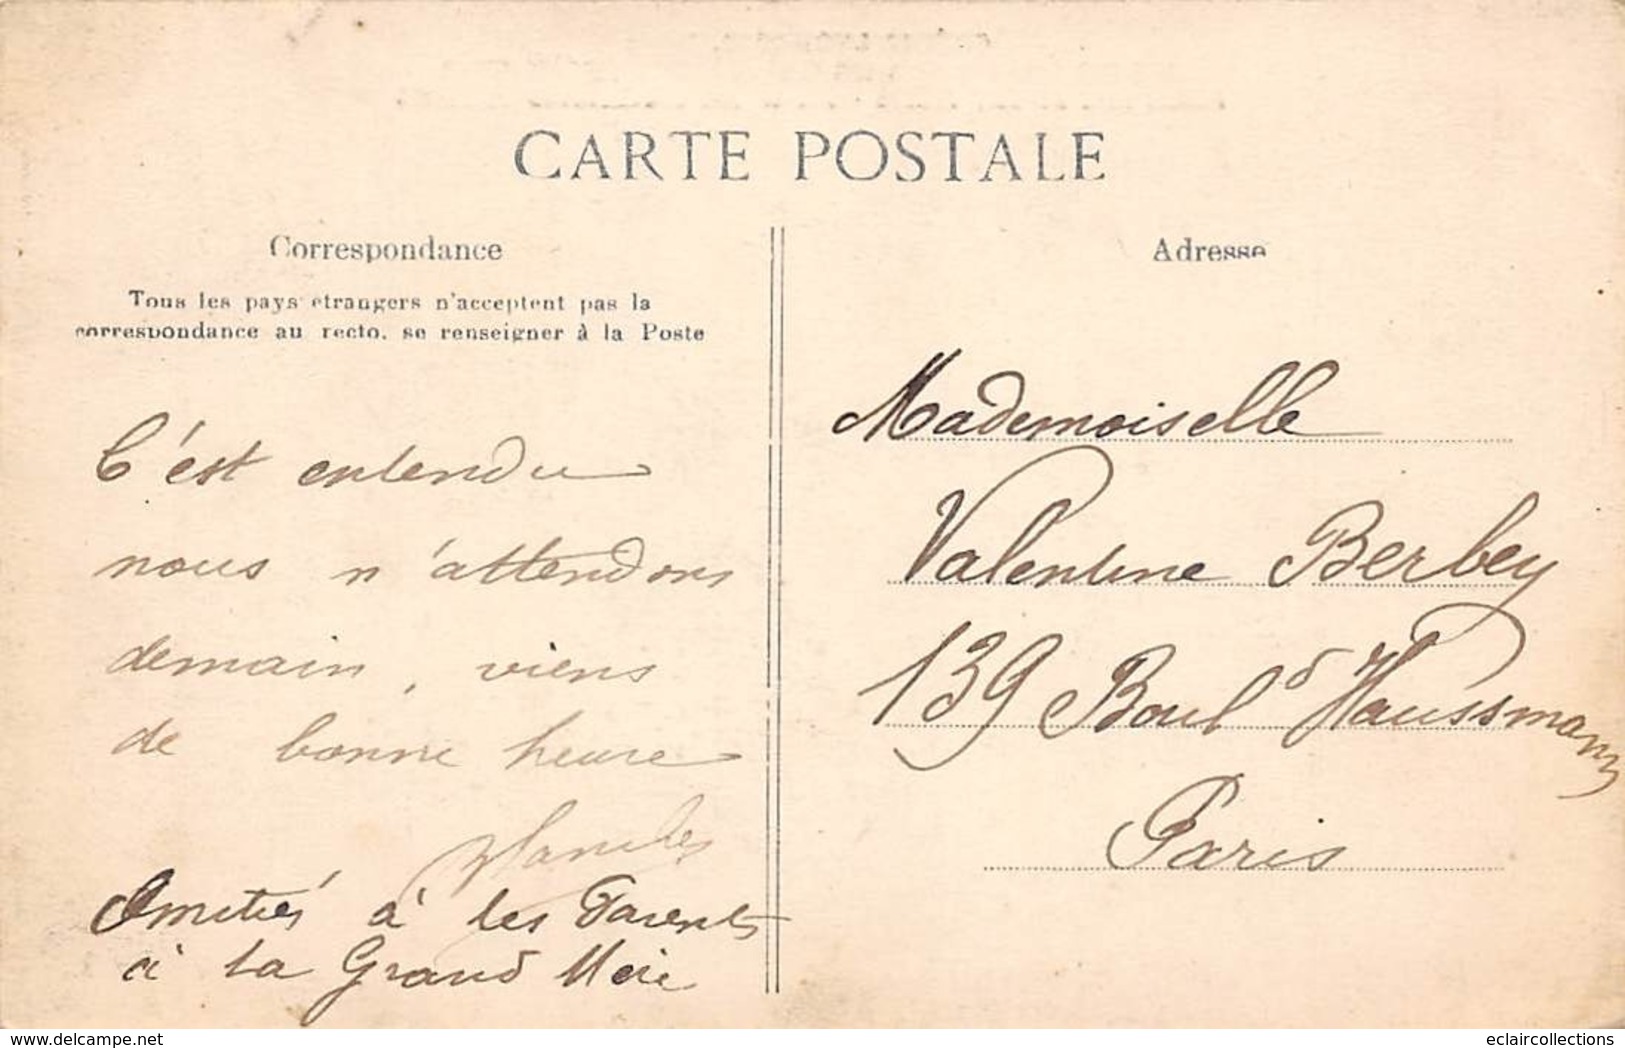 CARTE POSTALE
Correspondance
Tous les pays étrangers n'acceptent pas la
correspondance au recto, se renseigner à la Poste
C'est entendu
nous n'attendons
demain, viens
de bonne heure
Amitiés à tes Parents
à ta Grand Mère
Adresse
Mademoiselle
Valentine Berbey
139 Boul d Haussmann
Paris
eclaircollections
delcampe.net